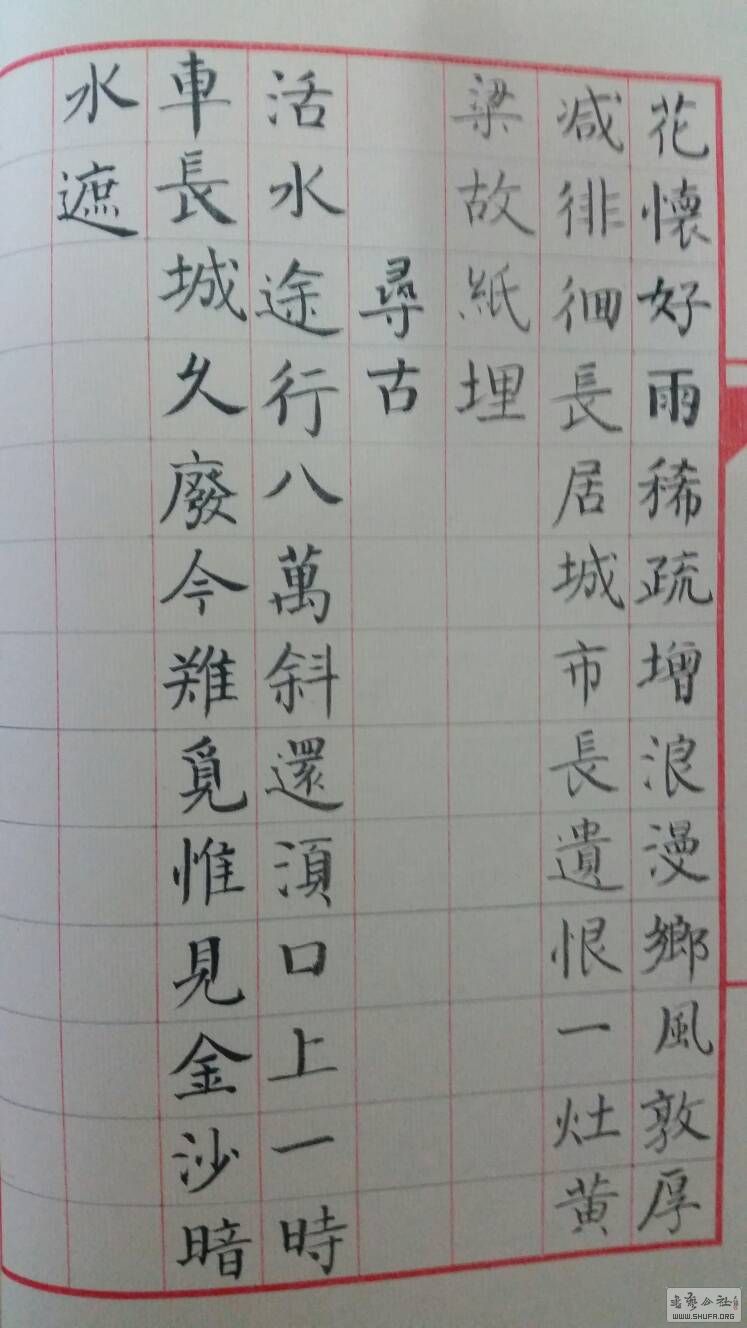 花懷好雨稀疏增浪漫鄉風敦厚
減徘徊長居城市長遺恨一灶黄
粱故紙埋
尋古
活水途行八萬斜還須口上一時
車長城久廢今難覓惟見金沙暗
水遮
WWW.SHUFA.ORG